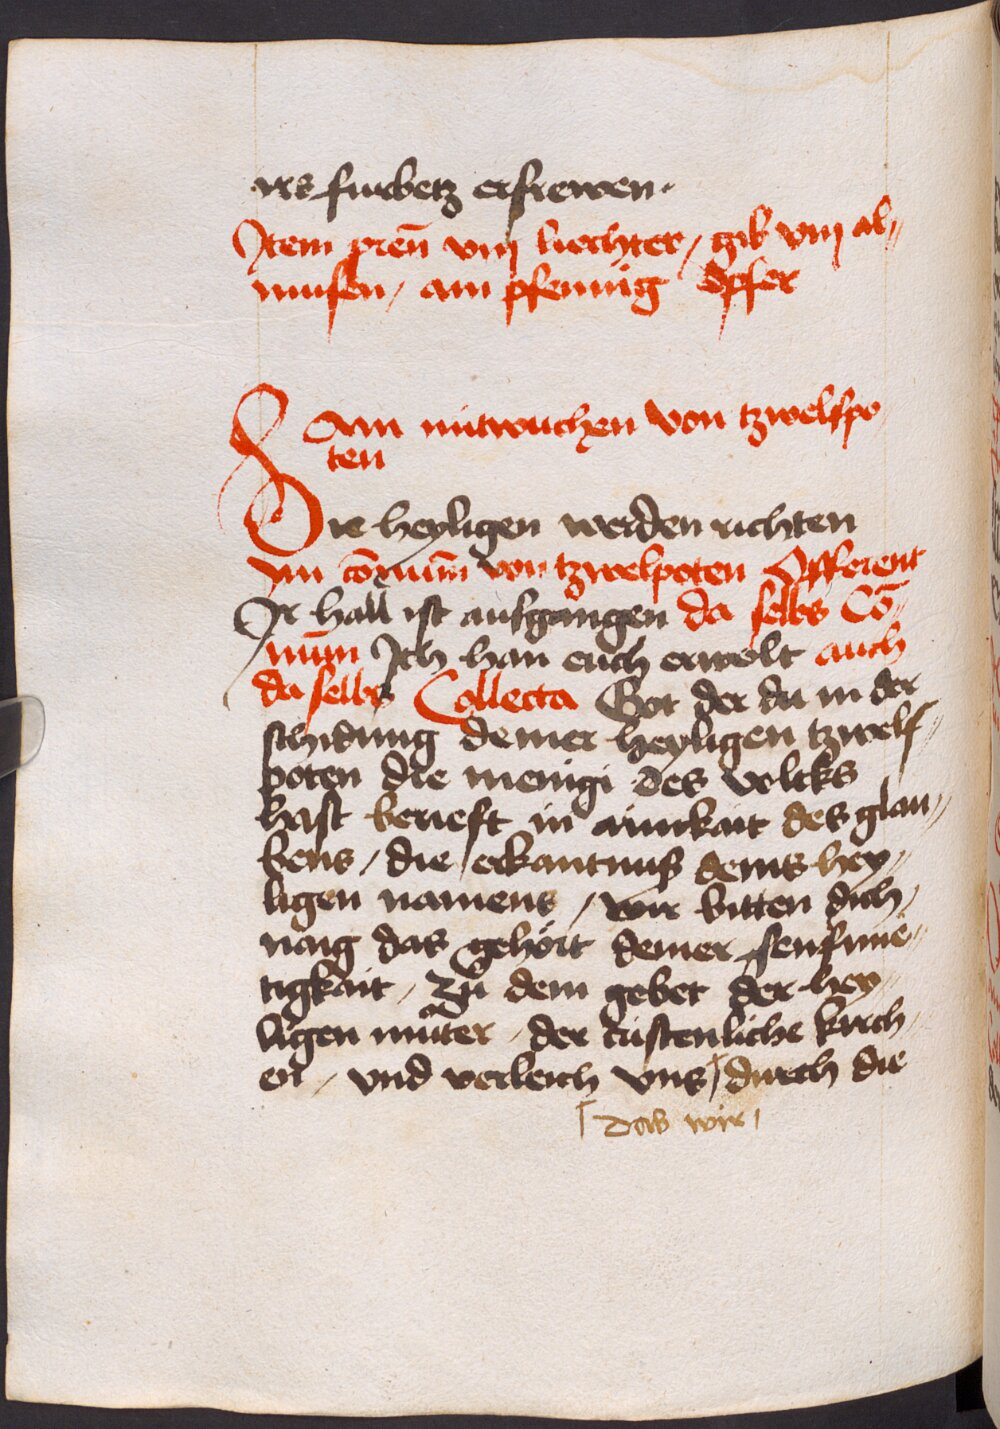 irs furbetz erfrewen·
Item pren̄ viij liechter / gib viij al„
musen / ain pfennig opfer
Am mitwuchen von tzwelfpo
ten
Die heyligen werden richten
Im co̅mum̄ von tzwelpoten Offerent
Ir hall ist ausgangen da selbs Co̅„
mum̄ Ich han euch erwelt auch
da selbs Collecta Got der du in der
schidung deiner heyligen tzwelf„
poten die menigi des volcks
hast berieft in ainikait des glau„
bens / die erkantnuß deins hey„
ligen namens / wir bitten dich /
naig das gehört deiner senfmüe„
tigkait / Zů dem gebet der hey„
ligen můter / der cristenliche kirch„
en / vnd verleich vns / durch die
das wir